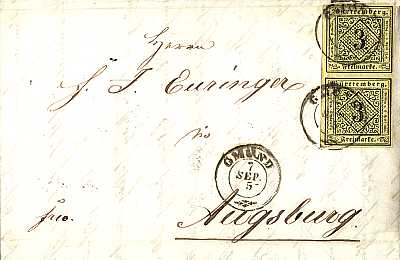 Württemberg.
3
Freimarke.
Württemberg.
3
Freimarke.
Herrn
J. J. Euringer
in
GMÜND
7
SEP.
5
Augsburg.
fco.